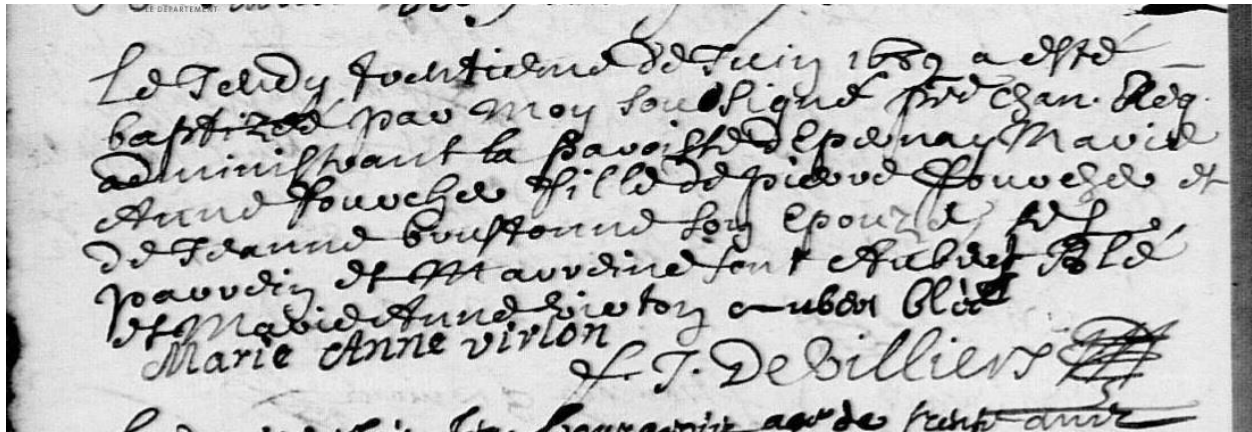 LE DÉPARTEMENT
Le Jeudy trentieme de Juin 1689 a esté
baptizée par moy soussigné pre chan. Reg.
administrant la paroisse d'Epernay Marie
Anne fourche fille de pierre fourche et
de Jeanne son epouze, ses
parrein et Marreine sont Aubert Blé
et Marie Anne virlon aubert blé
Marie Anne virlon
f. J. De Villiers